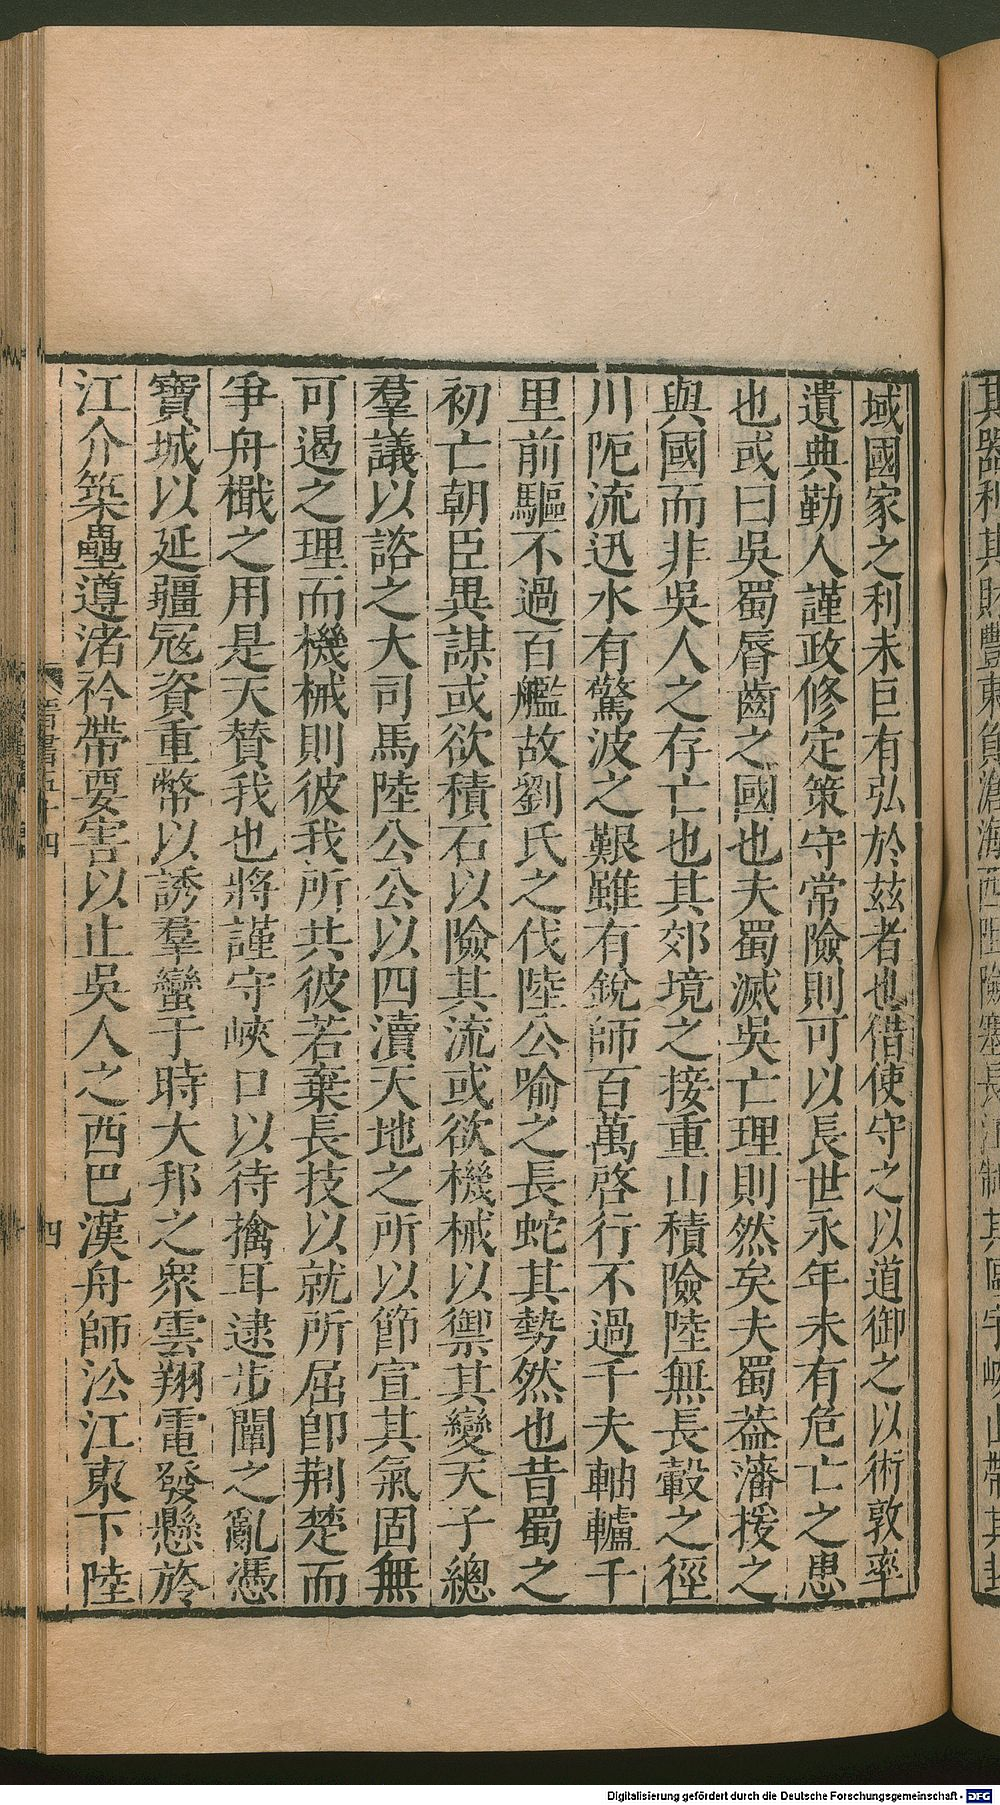 其器利其財豐東負滄海西阻險塞長江制其區宇峻山帶其封
域國家之利未巨有弘於茲者也借使守之以道御之以術敦率
遺典勤人謹政修定策守常險則可以長世永年未有危亡之患
也或曰吳蜀脣齒之國也夫蜀滅吳亡理則然矣夫蜀葢藩援之
與國而非吳人之存亡也其郊境之接重山積險陸無長轂之徑
川阨流迅水有驚波之艱雖有銳師百萬啓行不過千夫軸轤千
里前驅不過百艦故劉氏之伐陸公喻之長蛇其勢然也昔蜀之
初亡朝臣異謀或欲積石以險其流或欲機械以禦其變天子總
羣議以諮之大司馬陸公公以四瀆天地之所以節宣其氣固無
可遏之理而機械則彼我所共彼若棄長技以就所屈卽荆楚而
爭舟檝之用是天贊我也將謹守峽口以待擒耳逮步闡之亂憑
寶城以延彊寇資重幣以誘羣蠻于時大邦之眾雲翔電發懸旍
江介築壘遵渚衿帶要害以止吳人之西巴漢舟師㳂江東下陸
晉書五十四
四
Digitalisierung gefördert durch die Deutsche Forschungsgemeinschaft - DFG